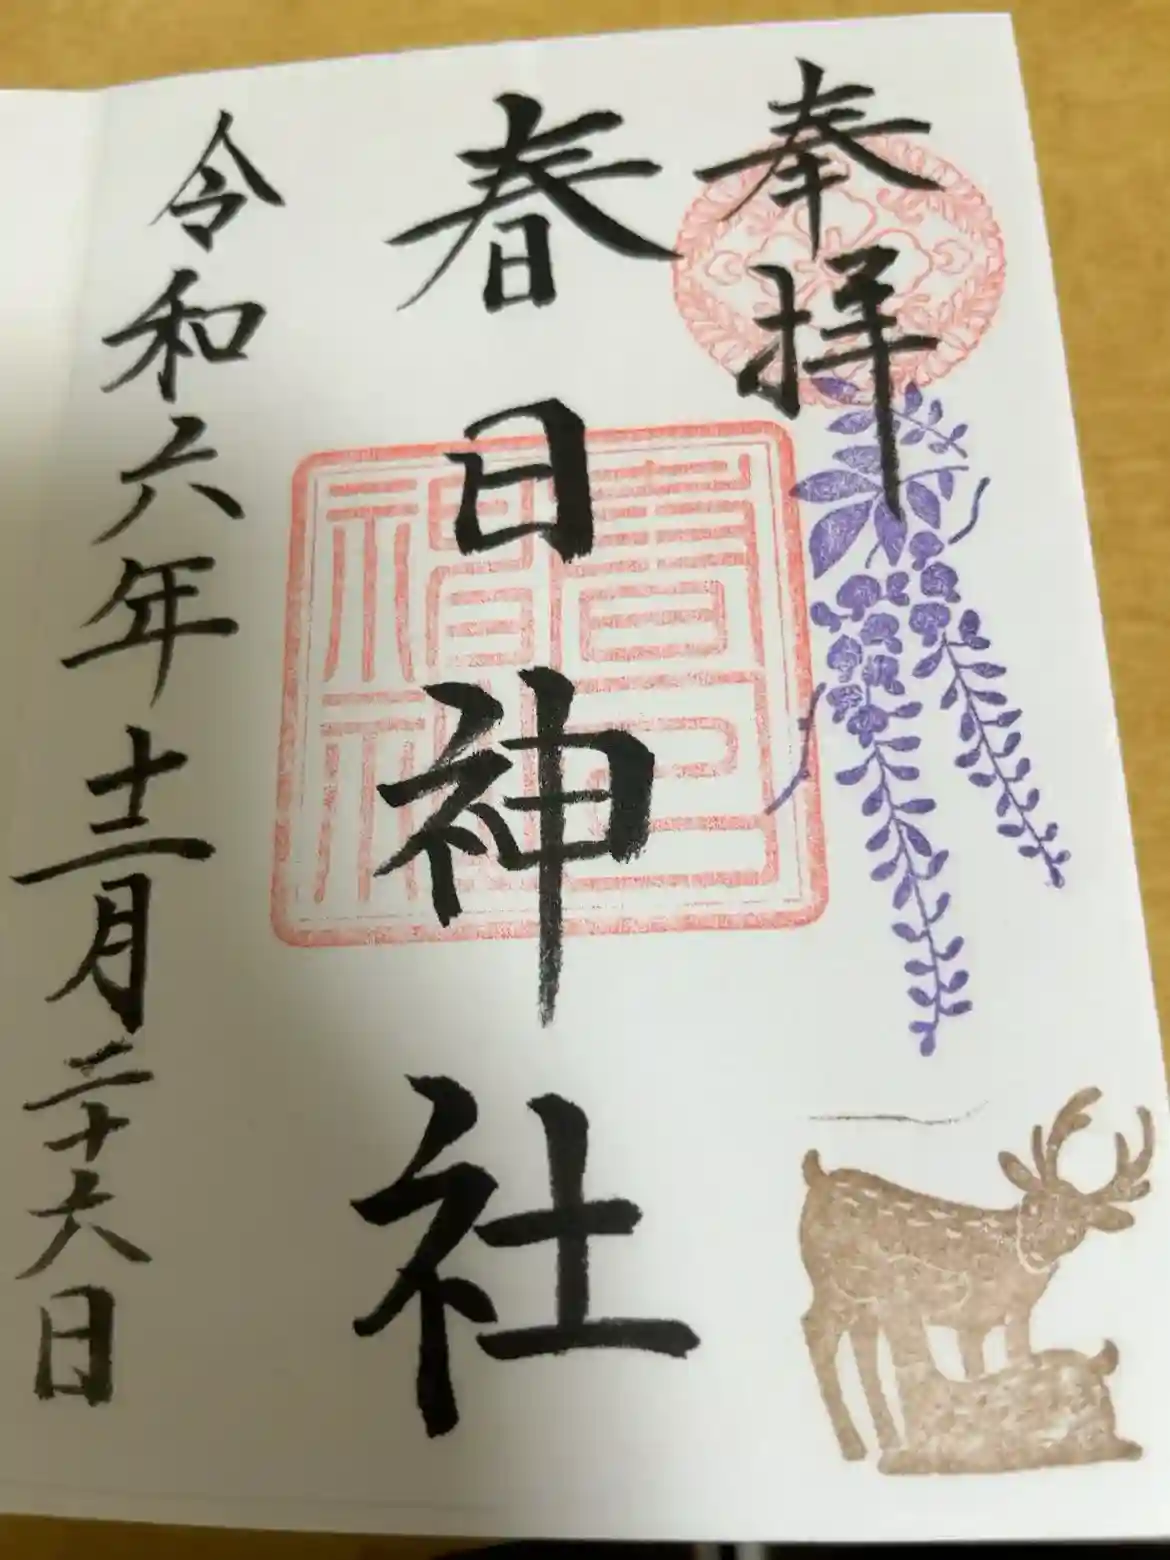 奉拝
春日神社
春日神社
令和六年十二月二十六日